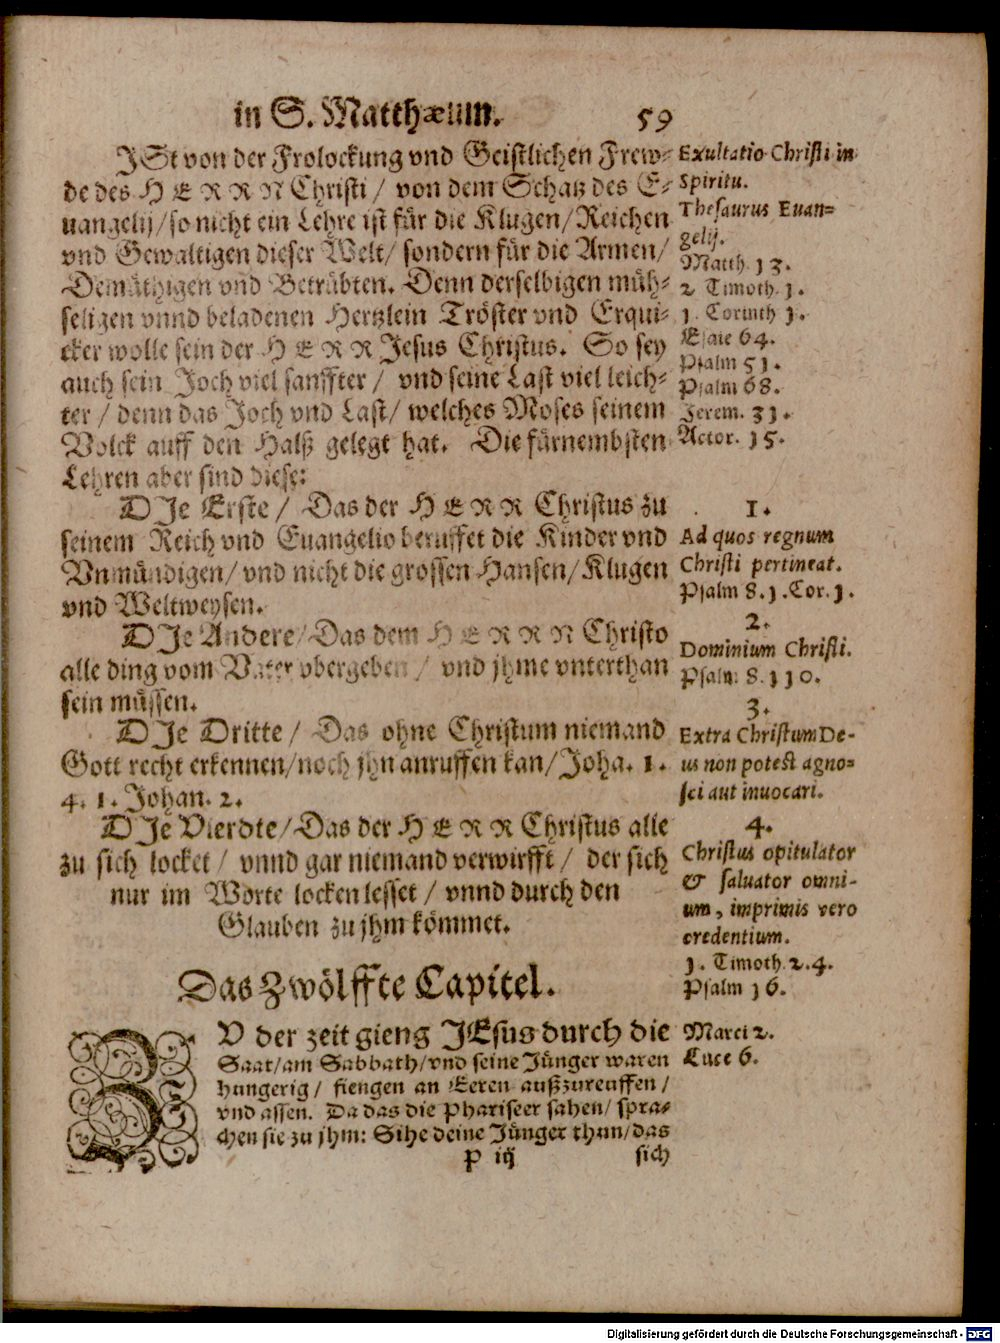 in S. Matthæum. 59
ISt von der Frolockung vnd Geistlichen Frew-
de des HERRN Christi / von dem Schatz des E-
uangelij / so nicht ein Lehre ist für die Klugen / Reichen
vnd Gewaltigen dieser Welt / sondern für die Armen /
Demüthigen vnd Betrübten. Denn derselbigen müh-
seligen vnnd beladenen Hertzlein Tröster vnd Erqui-
cker wolle sein der HERR Jesus Christus. So sey
auch sein Joch viel sanffter / vnd seine Last viel leich-
ter / denn das Joch vnd Last / welches Moses seinem
Volck auff den Halß gelegt hat. Die fürnembsten
Lehren aber sind diese:
Exultatio Christi in
Spiritu.
Thesaurus Euan-
gelij.
Matth. 13.
2 Timoth. 1.
1. Corinth 1.
Esaie 64.
Psalm 51.
Psalm 68.
Jerem. 31.
Actor. 15.
DIe Erste / Das der HERR Christus zu
seinem Reich vnd Euangelio beruffet die Kinder vnd
Vnmündigen / vnd nicht die grossen Hansen / Klugen
vnd Weltweysen.
1.
Ad quos regnum
Christi pertineat.
Psalm 8. 1. Cor. 1.
DIe Andere / Das dem HERRN Christo
alle ding vom Vater vbergeben / vnd jhme vnterthan
sein müssen.
2.
Dominium Christi.
Psalm. 8. 110.
DIe Dritte / Das ohne Christum niemand
Gott recht erkennen / noch jhn anruffen kan / Joha. 1.
4. 1. Johan. 2.
3.
Extra Christum De-
us non potest agno-
sci aut inuocari.
DIe Vierdte / Das der HERR Christus alle
zu sich locket / vnnd gar niemand verwirfft / der sich
nur im Worte locken lesset / vnnd durch den
Glauben zu jhm kömmet.
4.
Christus opitulator
& saluator omni-
um, imprimis vero
credentium.
1. Timoth. 2. 4.
Psalm 16.
Das Zwölffte Capitel.
ZV der zeit gieng JEsus durch die
Saat / am Sabbath / vnd seine Jünger waren
hungerig / fiengen an Eeren außzureuffen /
vnd assen. Da das die Phariseer sahen / spra-
chen sie zu jhm: Sihe deine Jünger thun / das
Marci 2.
Luce 6.
P iij sich
Digitalisierung gefördert durch die Deutsche Forschungsgemeinschaft - DFG